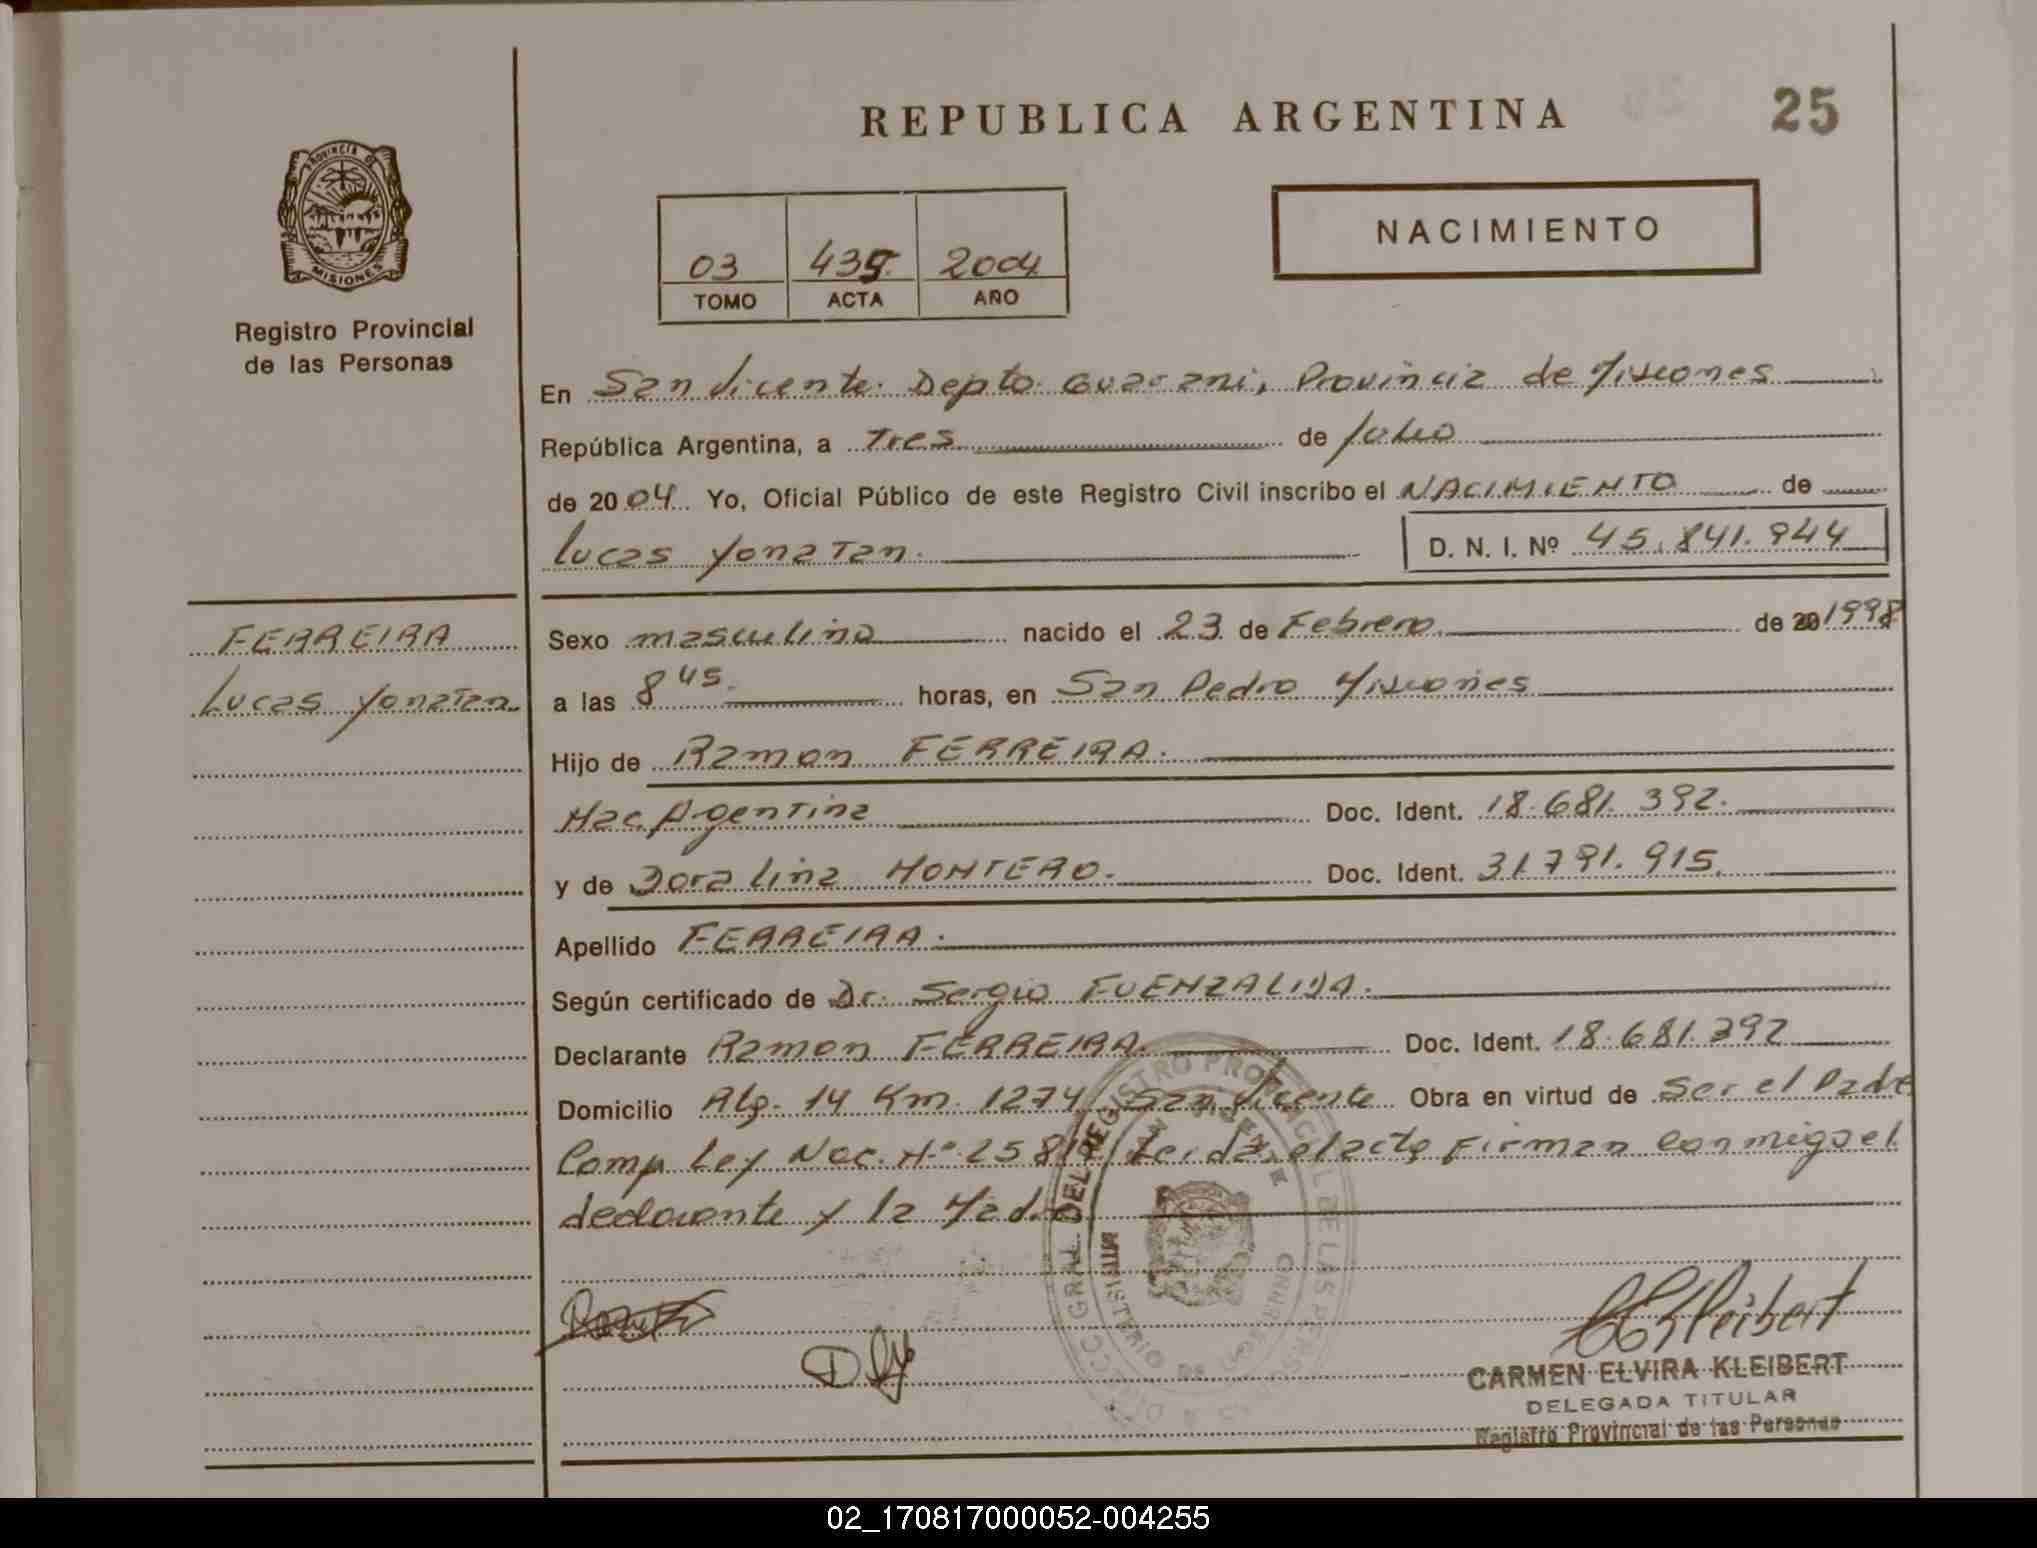 REPUBLICA ARGENTINA
25
PROVINCIA DE
MISIONES
Registro Provincial
de las Personas
03 439 2004
TOMO ACTA AÑO
NACIMIENTO
En San Vicente Depto Guarani, Provincia de Misiones
República Argentina, a Tres de Julio
de 2004 Yo, Oficial Público de este Registro Civil inscribo el NACIMIENTO de
Lucas Yonatan. D. N. I. Nº 45.841.944
FERREIRA
Lucas Yonatan
Sexo masculino nacido el 23 de Febrero de 20 1998
a las 8 45. horas, en San Pedro Misiones
Hijo de Ramon FERREIRA.
Nac Agentina Doc. Ident. 18.681.392.
y de Dora lina MONTERO. Doc. Ident. 31791.915.
Apellido FERREIRA.
Según certificado de Dr. Sergio FUENZALIDA.
Declarante Ramon FERREIRA. Doc. Ident. 18.681.392
Domicilio 14 Km. 1274 San Vicente Obra en virtud de Ser el Padre
Comp Ley Nac. Nº 25819 Leida el acta Firman Conmigo el
declarante y la Madre
CEKleibert
CARMEN ELVIRA KLEIBERT
DELEGADA TITULAR
Registro Provincial de las Personas
02_170817000052-004255